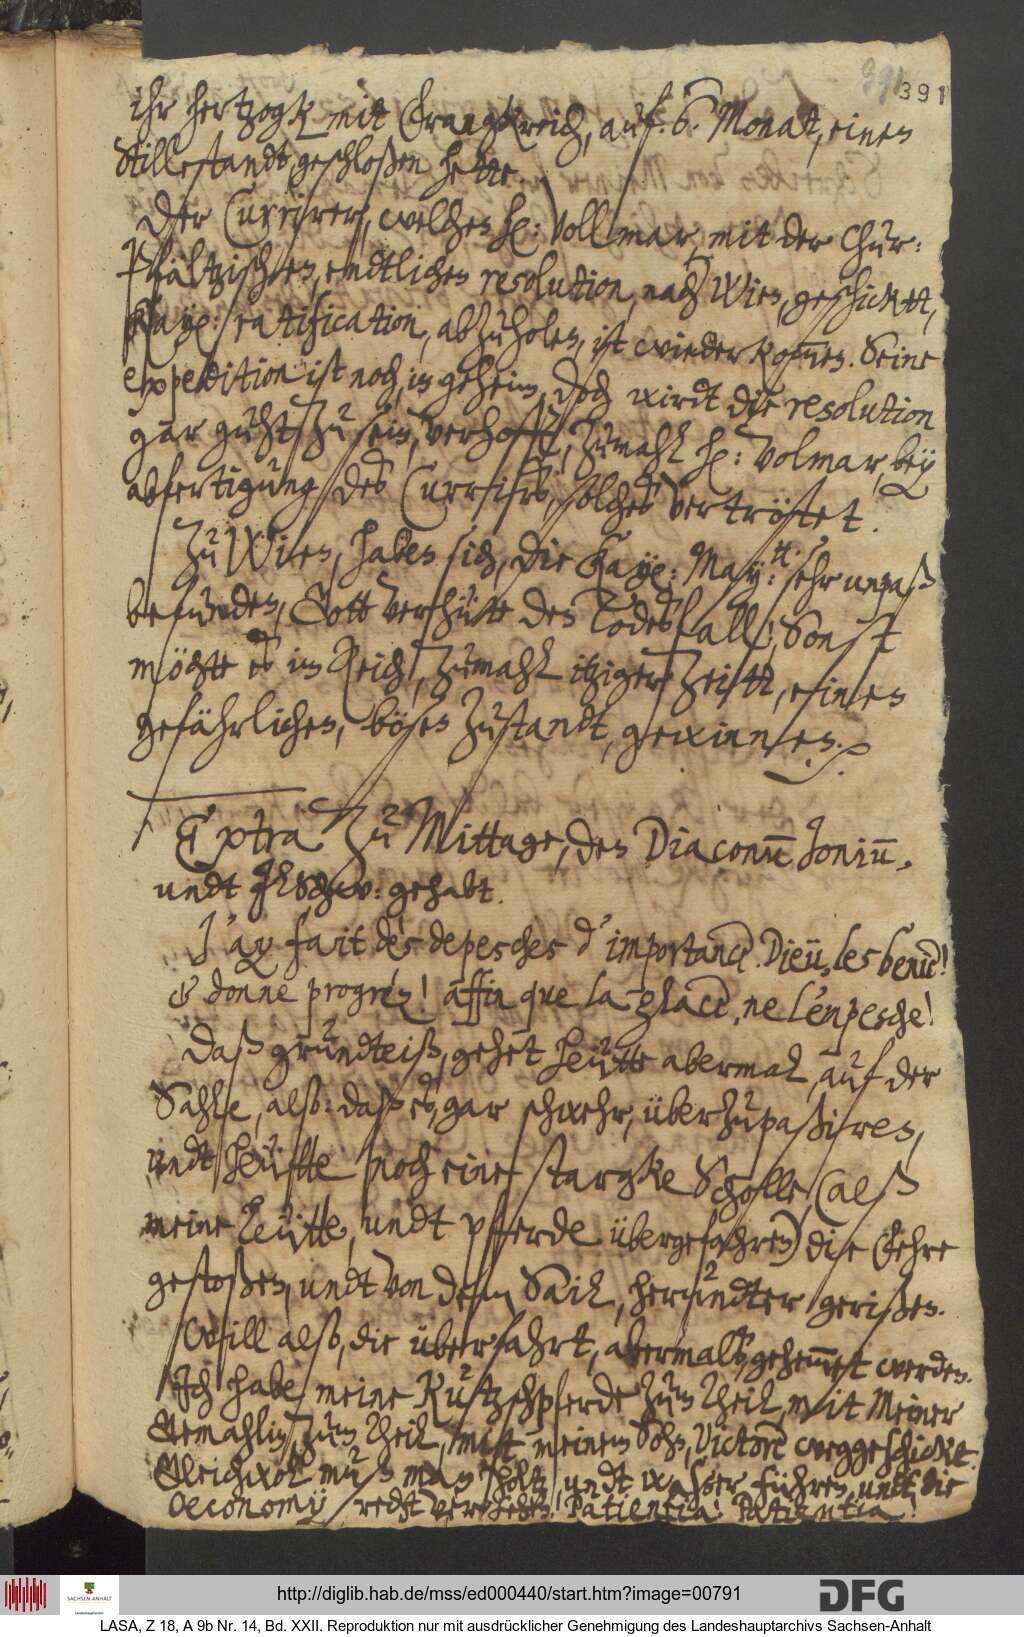 391 391
ihr hertzogk mit Frangkreich, auf. 6. Monat, einen
Stillestandt, geschloßen hette.
Der Currirer, welchen h: Vollmar, mit der Chur:
Pfältzischen, endtlichen resolution, nach Wien, geschicktt,
Kaye: ratification, abzuholen, ist wieder kom̄en. Seine
expedition ist noch, in geheim, doch wirdt die resolution
gar guht zu sein, verhofft, zumahl h: Volmar, bey
abfertigung des Currirers, solches vertröstet.
Zu Wien, haben sich, die Kaye: May:tt: sehr unpaß
befunden, Gott verhütte den Todesfall, Sonst
möchte es im Reich, zumahl itziger Zeitt, einen
gefährlichen, bösen zustandt, gewinnen.
Extra zu Mittage, den Diaconū Joniū,
undt Jkschw: gehabt.
J'ay fait dès depesches d'importance. Dieu, les benie!
& donne progréz! affin que la glace, ne l'enpesche!
Daß grundteiß, gehet heütte abermal, auf der
Sahle, alß: daß es, gar schwehr, überzupaßiren,
undt heütte noch eine stargke Scholle, (alß
meine Leütte, undt pferde übergefahren) die Fehre
gestoßen, undt von dem Sail, herundter gerißen.
Will alß, die überfahrt, abermalß, gehem̄et werden.
Ich habe meine Kutzschpferde zum theil, mit Meiner
Gemahlin, zum theil, mit meinem Sohn, Victore weggeschickt.
Gleichwol muß man holtz, undt waßer führen, undt die
Oeconomy, recht versehen! Patientia! Patientia!
http://diglib.hab.de/mss/ed000440/start.htm?image=00791
SACHSEN-ANHALT
Landeshauptarchiv
DFG
LASA, Z 18, A 9b Nr. 14, Bd. XXII. Reproduktion nur mit ausdrücklicher Genehmigung des Landeshauptarchivs Sachsen-Anhalt